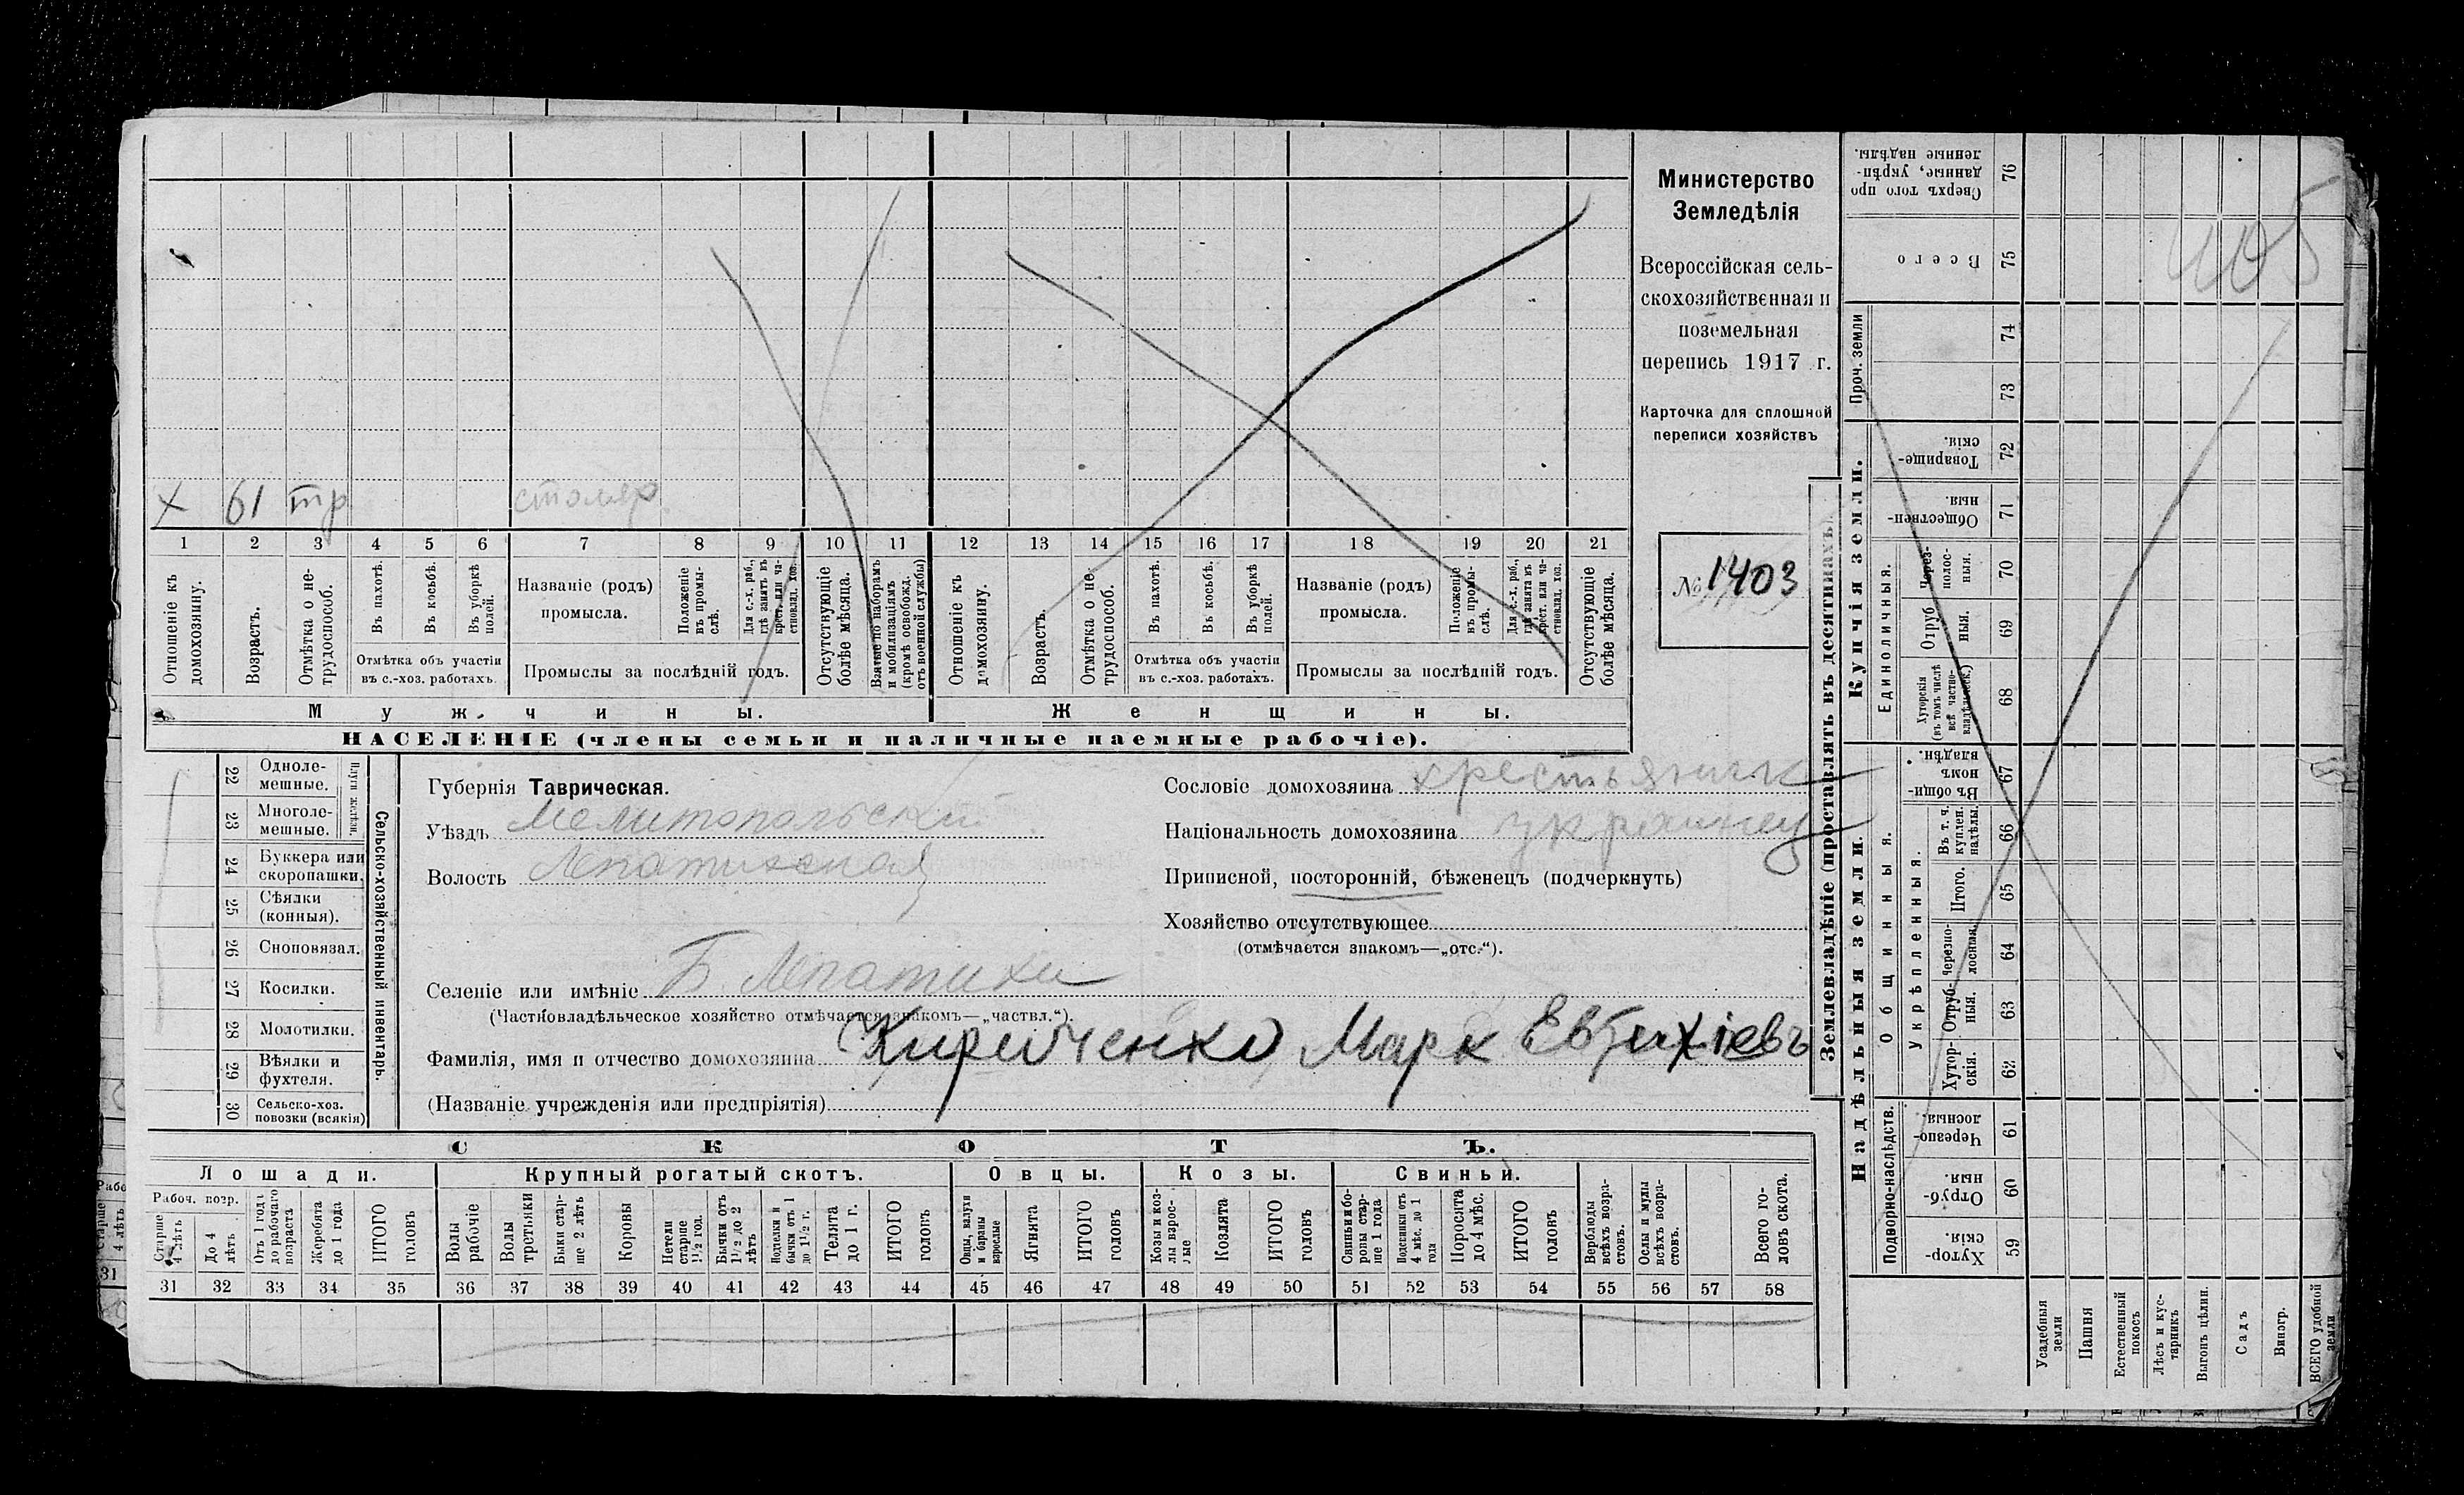 Министерство
Земледѣлія
Всероссійская сель-
скохозяйственная и
поземельная
перепись 1917 г.
Карточка для сплошной
переписи хозяйствъ
№ 1403
405
х 61 тр столяр
1 2 3 4 5 6 7 8 9 10 11 12 13 14 15 16 17 18 19 20 21
Отношеніе къ домохозяину.
Возрастъ.
Отмѣтка о не-трудоспособ.
Въ пахотѣ.
Въ косьбѣ.
Въ уборкѣ полей.
Отмѣтка объ участіи
въ с.-хоз. работахъ.
Названіе (родъ)
промысла.
Положеніе въ промы-слѣ.
Для с.-х. раб., гдѣ занятъ въ крест. или ча-стновлад. хоз.
Промыслы за послѣдній годъ.
Отсутствующіе болѣе мѣсяца.
Взятые по наборамъ и мобилизаціямъ (кромѣ освобожд. отъ военной службы)
Отношеніе къ домохозяину.
Возрастъ.
Отмѣтка о не-трудоспособ.
Въ пахотѣ.
Въ косьбѣ.
Въ уборкѣ полей.
Отмѣтка объ участіи
въ с.-хоз. работахъ.
Названіе (родъ)
промысла.
Положеніе въ промы-слѣ.
Для с.-х. раб., гдѣ занятъ въ крест. или ча-стновлад. хоз.
Промыслы за послѣдній годъ.
Отсутствующіе болѣе мѣсяца.
Мужчины.
Женщины.
НАСЕЛЕНІЕ (члены семьи и наличные наемные рабочіе).
22 Одноле-мешные.
23 Многоле-мешные.
Плуги желѣзн.
24 Буккера или скоропашки.
25 Сѣялки (конныя).
26 Сноповязал.
27 Косилки.
28 Молотилки.
29 Вѣялки и фухтеля.
30 Сельско-хоз. повозки (всякія)
Сельско-хозяйственный инвентарь.
Губернія Таврическая.
Уѣздъ Мелитопольский
Волость Лепатихская
Селеніе или имѣніе Б. Лепатихи
(Частновладѣльческое хозяйство отмѣчается знакомъ—„частвл.“).
Фамилія, имя и отчество домохозяина Кирейченко Марк Евтихіевъ
(Названіе учрежденія или предпріятія)
Сословіе домохозяина крестьянинъ
Національность домохозяина украинец
Приписной, посторонній, бѣженецъ (подчеркнуть)
Хозяйство отсутствующее
(отмѣчается знакомъ—„отс.“).
СКОТЪ.
Лошади.
Крупный рогатый скотъ.
Овцы.
Козы.
Свиньи.
Рабоч. возр.
Старше 4 лѣтъ
До 4 лѣтъ
Отъ 1 года до рабочаго возраста
Жеребята до 1 года
ИТОГО головъ
Волы рабочіе
Волы третьяки
Быки стар-ше 2 лѣтъ
Коровы
Нетели старше 1½ год.
Бычки отъ 1½ до 2 лѣтъ
Подтелки и бычки отъ 1 до 1½ г.
Телята до 1 г.
ИТОГО головъ
Овцы, валухи и бараны взрослые
Ягнята
ИТОГО головъ
Козы и коз-лы взрос-лые
Козлята
ИТОГО головъ
Свиньи и бо-ровы стар-ше 1 года
Подсвинки отъ 4 мѣс. до 1 года
Поросята до 4 мѣс.
ИТОГО головъ
Верблюды всѣхъ возра-стовъ.
Ослы и мулы всѣхъ возра-стовъ.
Всего го-ловъ скота.
31 32 33 34 35 36 37 38 39 40 41 42 43 44 45 46 47 48 49 50 51 52 53 54 55 56 57 58
Землевладѣніе (проставлять въ десятинахъ).
Сверхъ того про-данные, укрѣп-ленные надѣлы. 76
Всего 75
Проч. земли
74
73
Купчія земли.
Товарище-скія. 72
Обществен-ныя. 71
Единоличныя.
Черезполос-ныя. 70
Отруб-ныя. 69
Хуторскія (въ томъ числѣ всѣ частно-владѣльческ.) 68
Надѣльныя земли.
Общинныя.
Въ общи-номъ владѣн. 67
Укрѣпленныя.
Въ т. ч. куплен. надѣлы. 66
Итого. 65
Черезпо-лосныя. 64
Отруб-ныя. 63
Хутор-скія. 62
Подворно-наслѣдств.
Черезпо-лосныя 61
Отруб-ныя. 60
Хутор-скія. 59
Усадебныя земли
Пашня
Естественный покосъ
Лѣсъ и кус-тарникъ
Выгонъ цѣлин.
Садъ
Виногр.
ВСЕГО удобной земли